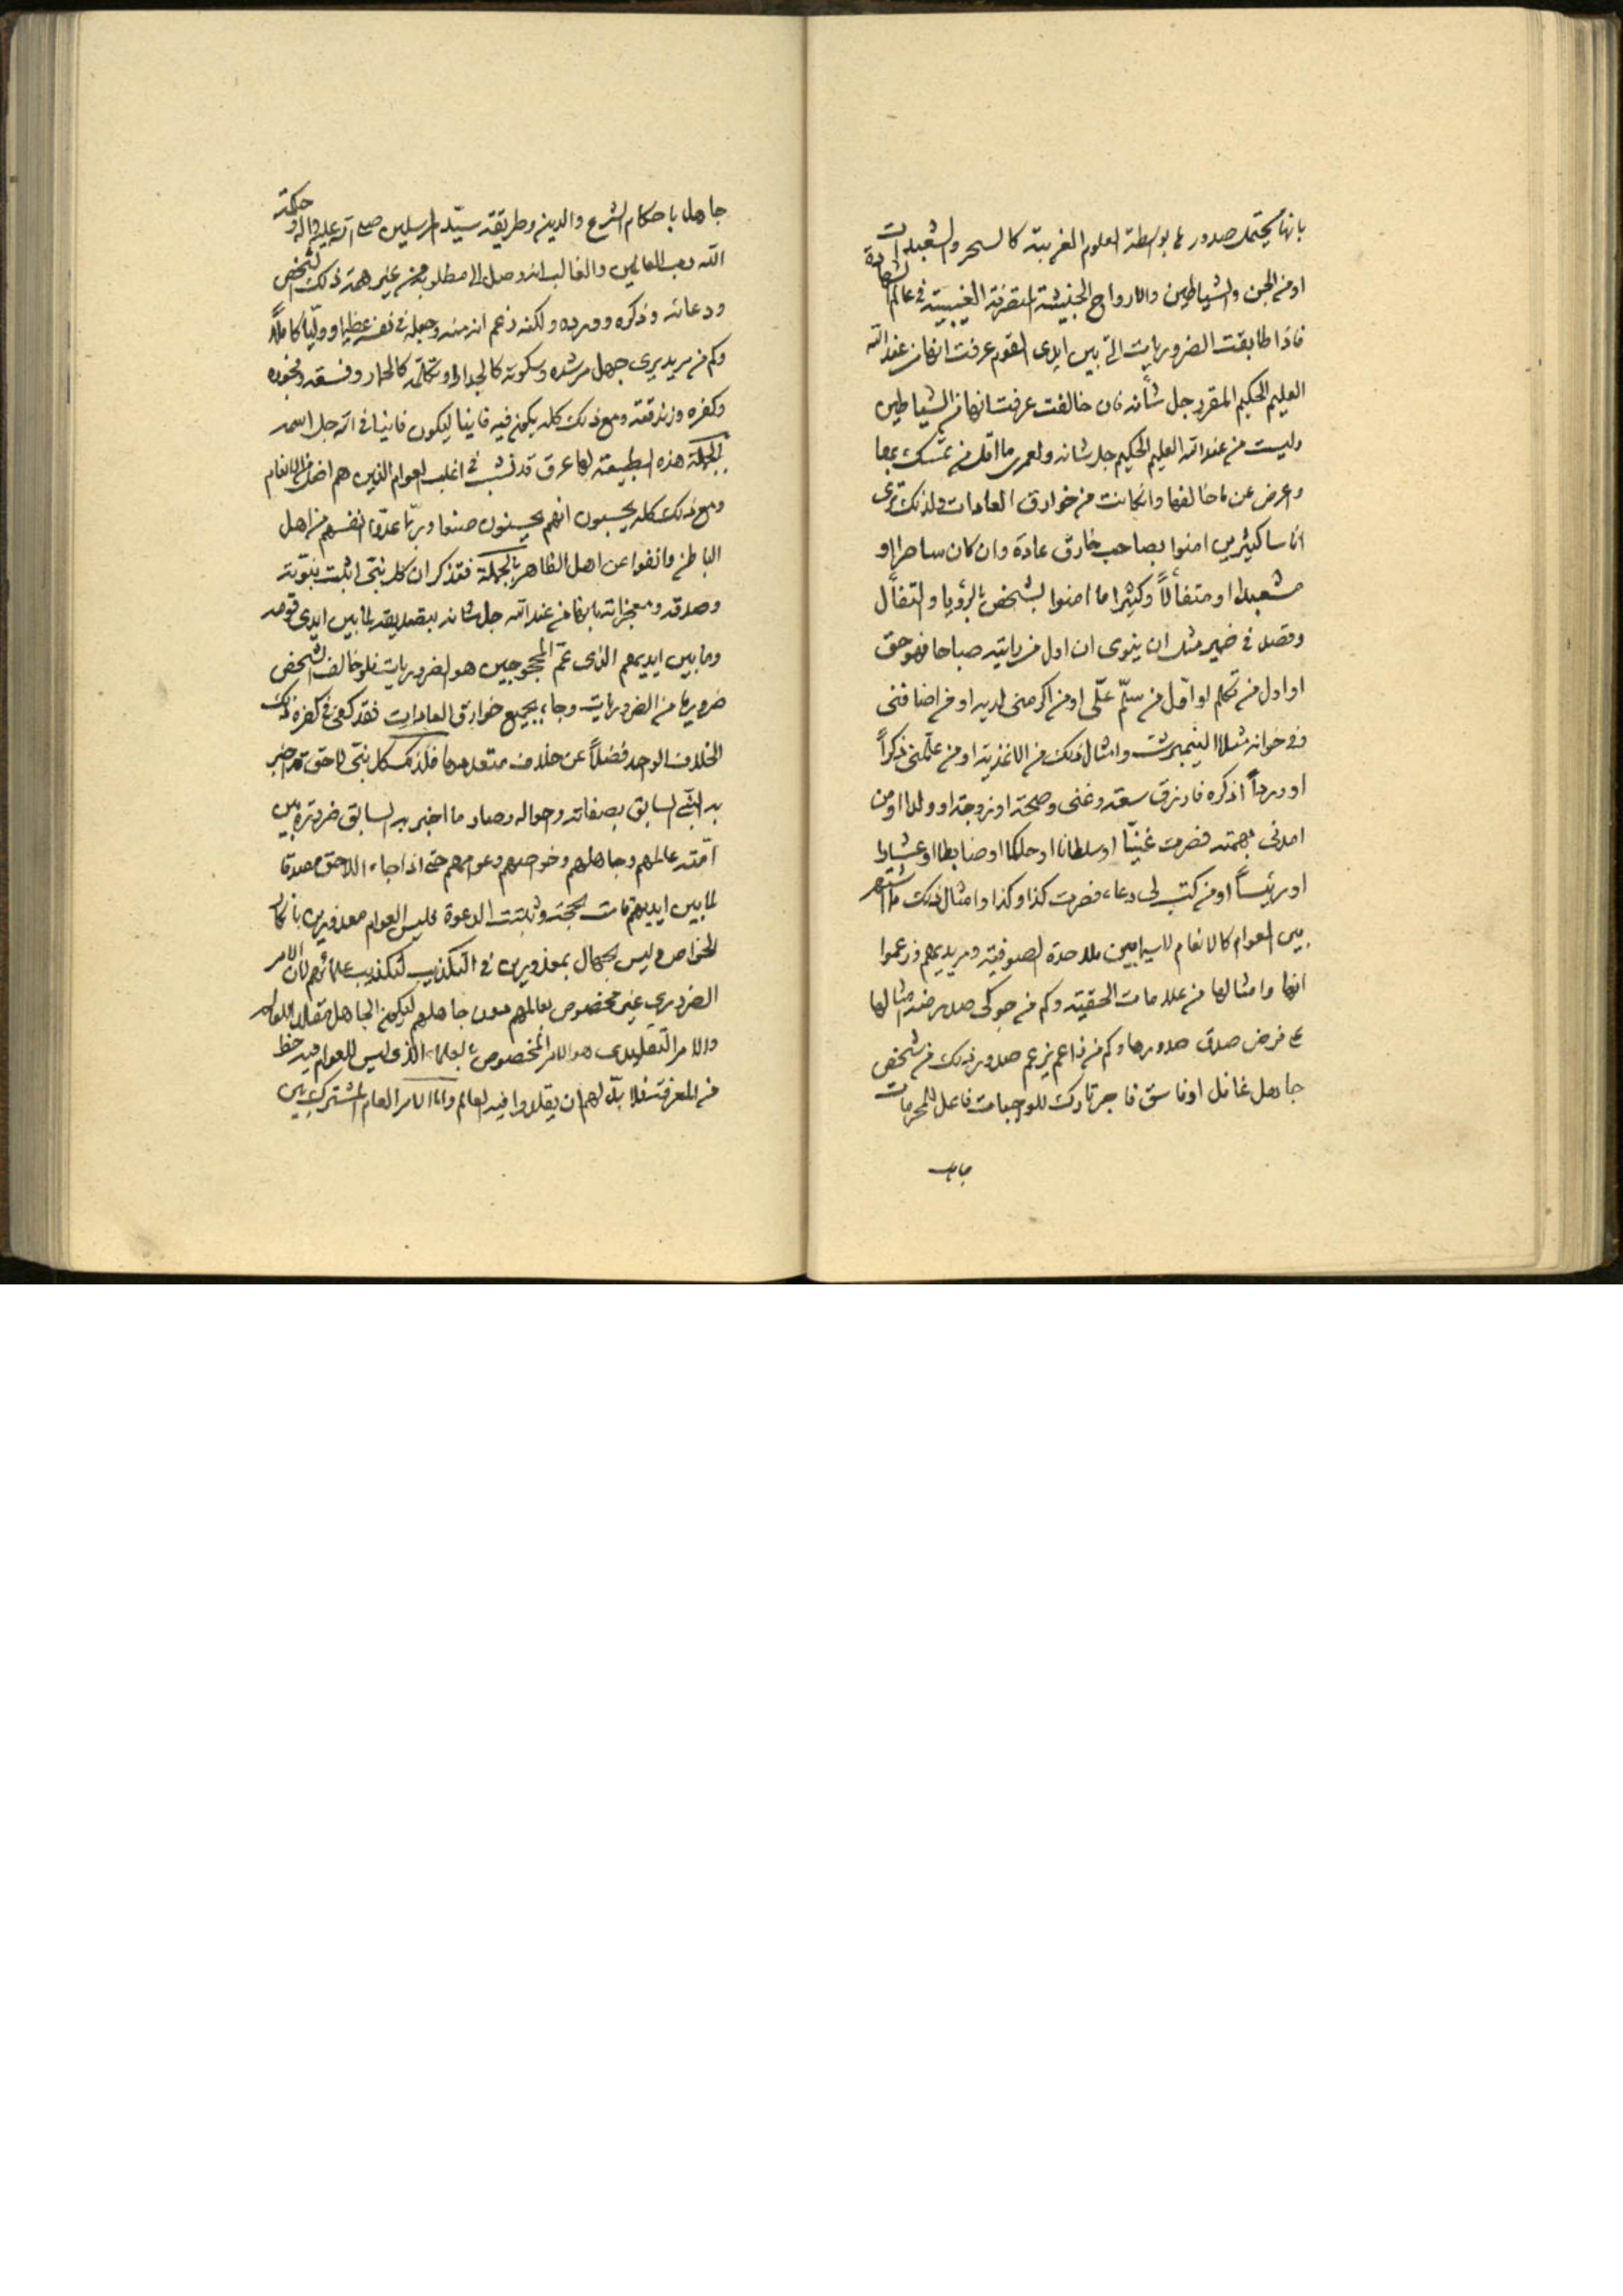 بانها يحتمل صدورها بواسطة العلوم الغريبة كالسحر والشعبدات
او من الجن والشياطين والارواح الخبيثة المتصرفة الغيبية في عالم الشهادة
فاذا طابقت الضروريات التي بين ايدى القوم عرفت انها من عند الله
العليم الحكيم المقرر جل شأنه فان خالفت عرفت انها من الشياطين
وليست من عند الله العليم الحكيم جل شانه ولعمرى ما اقل من تمسك بها
واعرض عن ما خالفها وان كانت من خوارق العادات ولذلك ترى
اناسا كثيرين امنوا بصاحب خارق عادة وان كان ساحرا او
مشعبدا او متفألاً وكثيرا ما امنوا بشخص بالرؤيا والتفأل
وقصد في ضمير مثل ان ينوى ان اول من رايته صباحا فهو حق
او اول من تكلم او اول من سلّم علّى او من اكرمنى لديه او من اضافنى
وفي خوانه مثلا النيمبرشت وامثال ذلك من الاغذية او من علمنى ذكراً
او ورداً اذكره فارزق سعة وغنى وصحة او زوجة او ولدا او من
امدنى بهمته فصرت غنيّا او سلطانا او حاكما او ضابطا او عشارا
او رئيساً او من كتب لى دعاء فصرت كذا وكذا وامثال ذلك ما اشتهر
بين العوام كالانعام لاسيما بين ملاحدة الصوفية ومريديهم وزعموا
انها وامثالها من علامات الحقية وكم من جوكى صدر منه امثالها
على فرض صدق صدورها وكم من زاعم يزعم صدور ذلك من شخص
جاهل غافل او فاسق فاجر تارك للواجبات فاعل للمحرمات
جاهل
جاهل باحكام الشرع والدين وطريقة سيّد المرسلين صلى الله عليه واله وحكمة
الله رب العالمين والغالب انه وصل الى مطلوبه من غير همة ذلك الشخص
ودعائه وذكره وورده ولكنه زعم انه منه وجعله في نفسه عظيما ووليّا كاملاً
وكم من مريد يرى جهل مرشده وسكوته كالجدار او تكلمه كالحمار وفسقه وفجوره
وكفره وزندقته ومع ذلك كله يكون فيه فانيا ليكون فانيا في الله جل اسمه
بالجملة هذه الطبيعة لها عرق قد نشب في اغلب العوام الذين هم اضل من الانعام
ومع ذلك كله يحسبون انهم يحسنون صنعا وربّما عدّوا انفسهم من اهل
الباطن وانفوا عن اهل الظاهر بالجملة فقد ذكر ان كل نبى اثبت نبوته
وصدقه ومعجزاته بانها من عند الله جل شانه بتصديقه لما بين ايدى قومه
وما بين ايديهم الذى عمّ المحجوجين هو الضروريات فلو خالف الشخص
ضروريا من الضروريات وجاء بجميع خوارق العادات فقد كفى في كفره ذلك
الخلاف الواحد فضلاً عن خلاف متعددها فلذلك كل نبى لاحق قد اخبر
به النبى السابق بصفاته واحواله وصار ما اخبر به السابق ضرورة بين
امّته عالمهم وجاهلهم وخواصهم وعوامهم حتى اذا جاء اللاحق مصدقا
لما بين ايديهم قامت الحجة وثبتت الدعوة فليس العوام معذورين بانكار
الخواص وليس الجهال بمعذورين في التكذيب لتكذيب علمائهم لان الامر
الضرورى غير مخصوص بعالمهم دون جاهلهم ليكون الجاهل مقلدا للعالم
والامر التقليدى هو الامر المخصوص بالعلماء الذى ليس للعوام فيه حظ
من المعرفة فلا بدّ لهم ان يقلدوا فيه العالم واما الامر العام المشترك بين